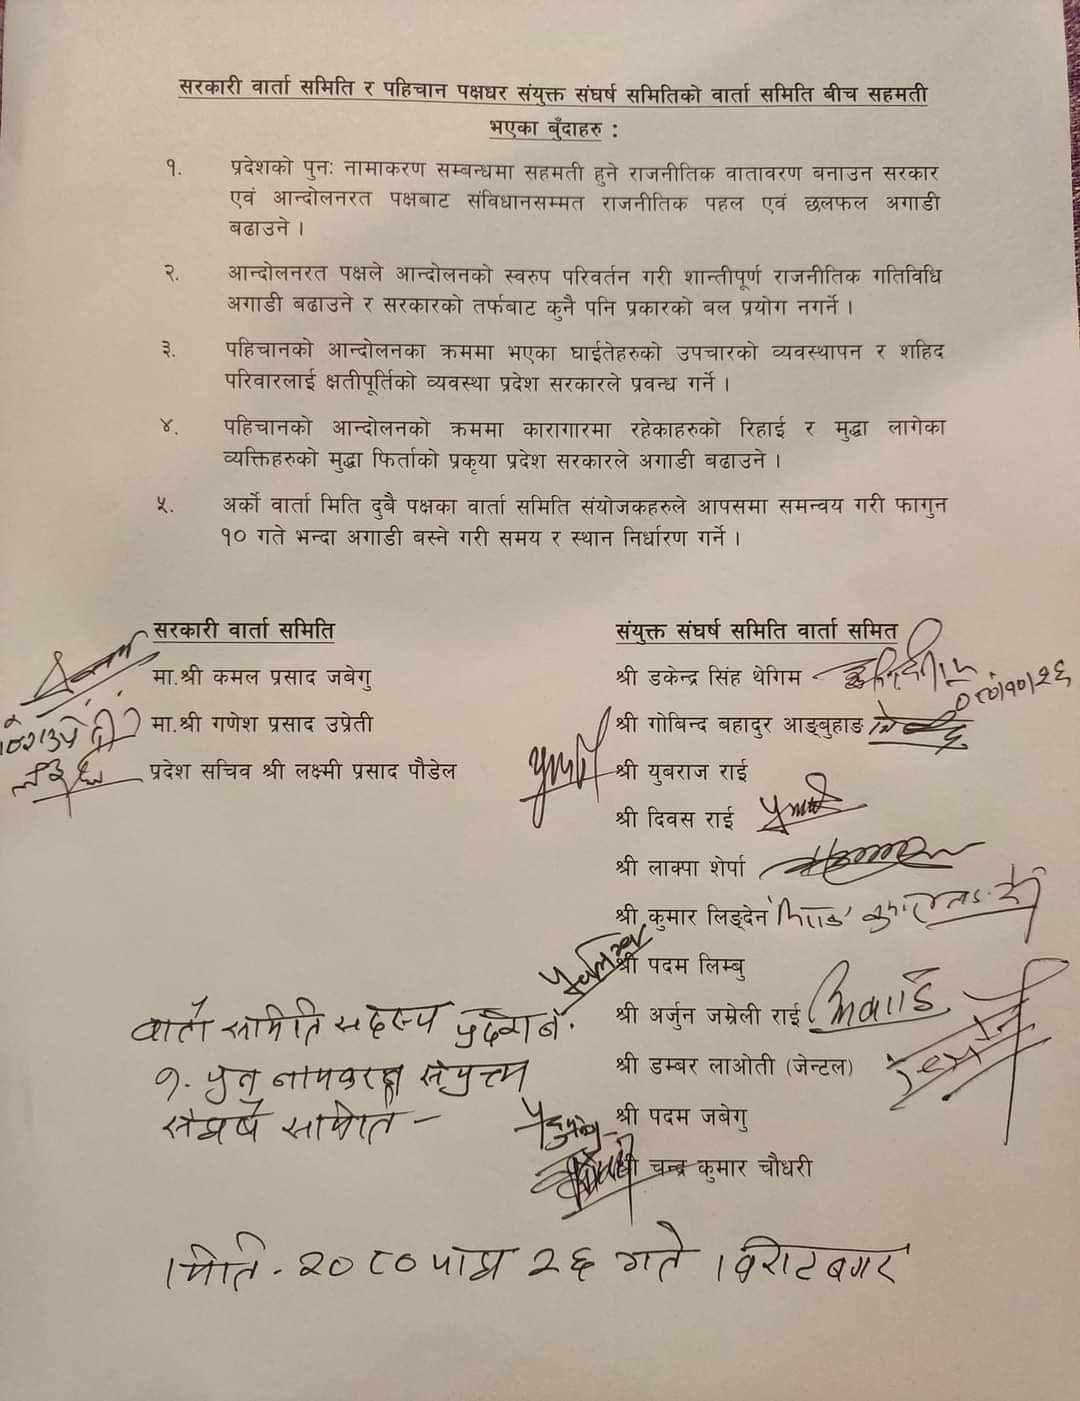 सरकारी वार्ता समिति र पहिचान पक्षधर संयुक्त संघर्ष समितिको वार्ता समिति बीच सहमती
भएका बुँदाहरु :
१. प्रदेशको पुनः नामाकरण सम्बन्धमा सहमती हुने राजनीतिक वातावरण बनाउन सरकार
एवं आन्दोलनरत पक्षबाट संविधानसम्मत राजनीतिक पहल एवं छलफल अगाडी
बढाउने ।
२. आन्दोलनरत पक्षले आन्दोलनको स्वरुप परिवर्तन गरी शान्तीपूर्ण राजनीतिक गतिविधि
अगाडी बढाउने र सरकारको तर्फबाट कुनै पनि प्रकारको बल प्रयोग नगर्ने ।
३. पहिचानको आन्दोलनका क्रममा भएका घाईतेहरुको उपचारको व्यवस्थापन र शहिद
परिवारलाई क्षतीपूर्तिको व्यवस्था प्रदेश सरकारले प्रवन्ध गर्ने ।
४. पहिचानको आन्दोलनको क्रममा कारागारमा रहेकाहरुको रिहाई र मुद्धा लागेका
व्यक्तिहरुको मुद्धा फिर्ताको प्रकृया प्रदेश सरकारले अगाडी बढाउने ।
५. अर्को वार्ता मिति दुबै पक्षका वार्ता समिति संयोजकहरुले आपसमा समन्वय गरी फागुन
१० गते भन्दा अगाडी बस्ने गरी समय र स्थान निर्धारण गर्ने ।
सरकारी वार्ता समिति
मा.श्री कमल प्रसाद जबेगु
मा.श्री गणेश प्रसाद उप्रेती
प्रदेश सचिव श्री लक्ष्मी प्रसाद पौडेल
संयुक्त संघर्ष समिति वार्ता समित
श्री डकेन्द्र सिंह थेगिम
श्री गोबिन्द बहादुर आङ्बुहाङ
श्री युबराज राई
श्री दिवस राई
श्री लाक्पा शेर्पा
श्री कुमार लिङ्देन
श्री पदम लिम्बु
श्री अर्जुन जम्रेली राई
श्री डम्बर लाओती (जेन्टल)
श्री पदम जबेगु
श्री चन्द्र कुमार चौधरी
वार्ता समिति सदस्य
१. पुन नामकरण संयुक्त
संघर्ष समिति -
मिति - २०८० माघ २६ गते विराटनगर